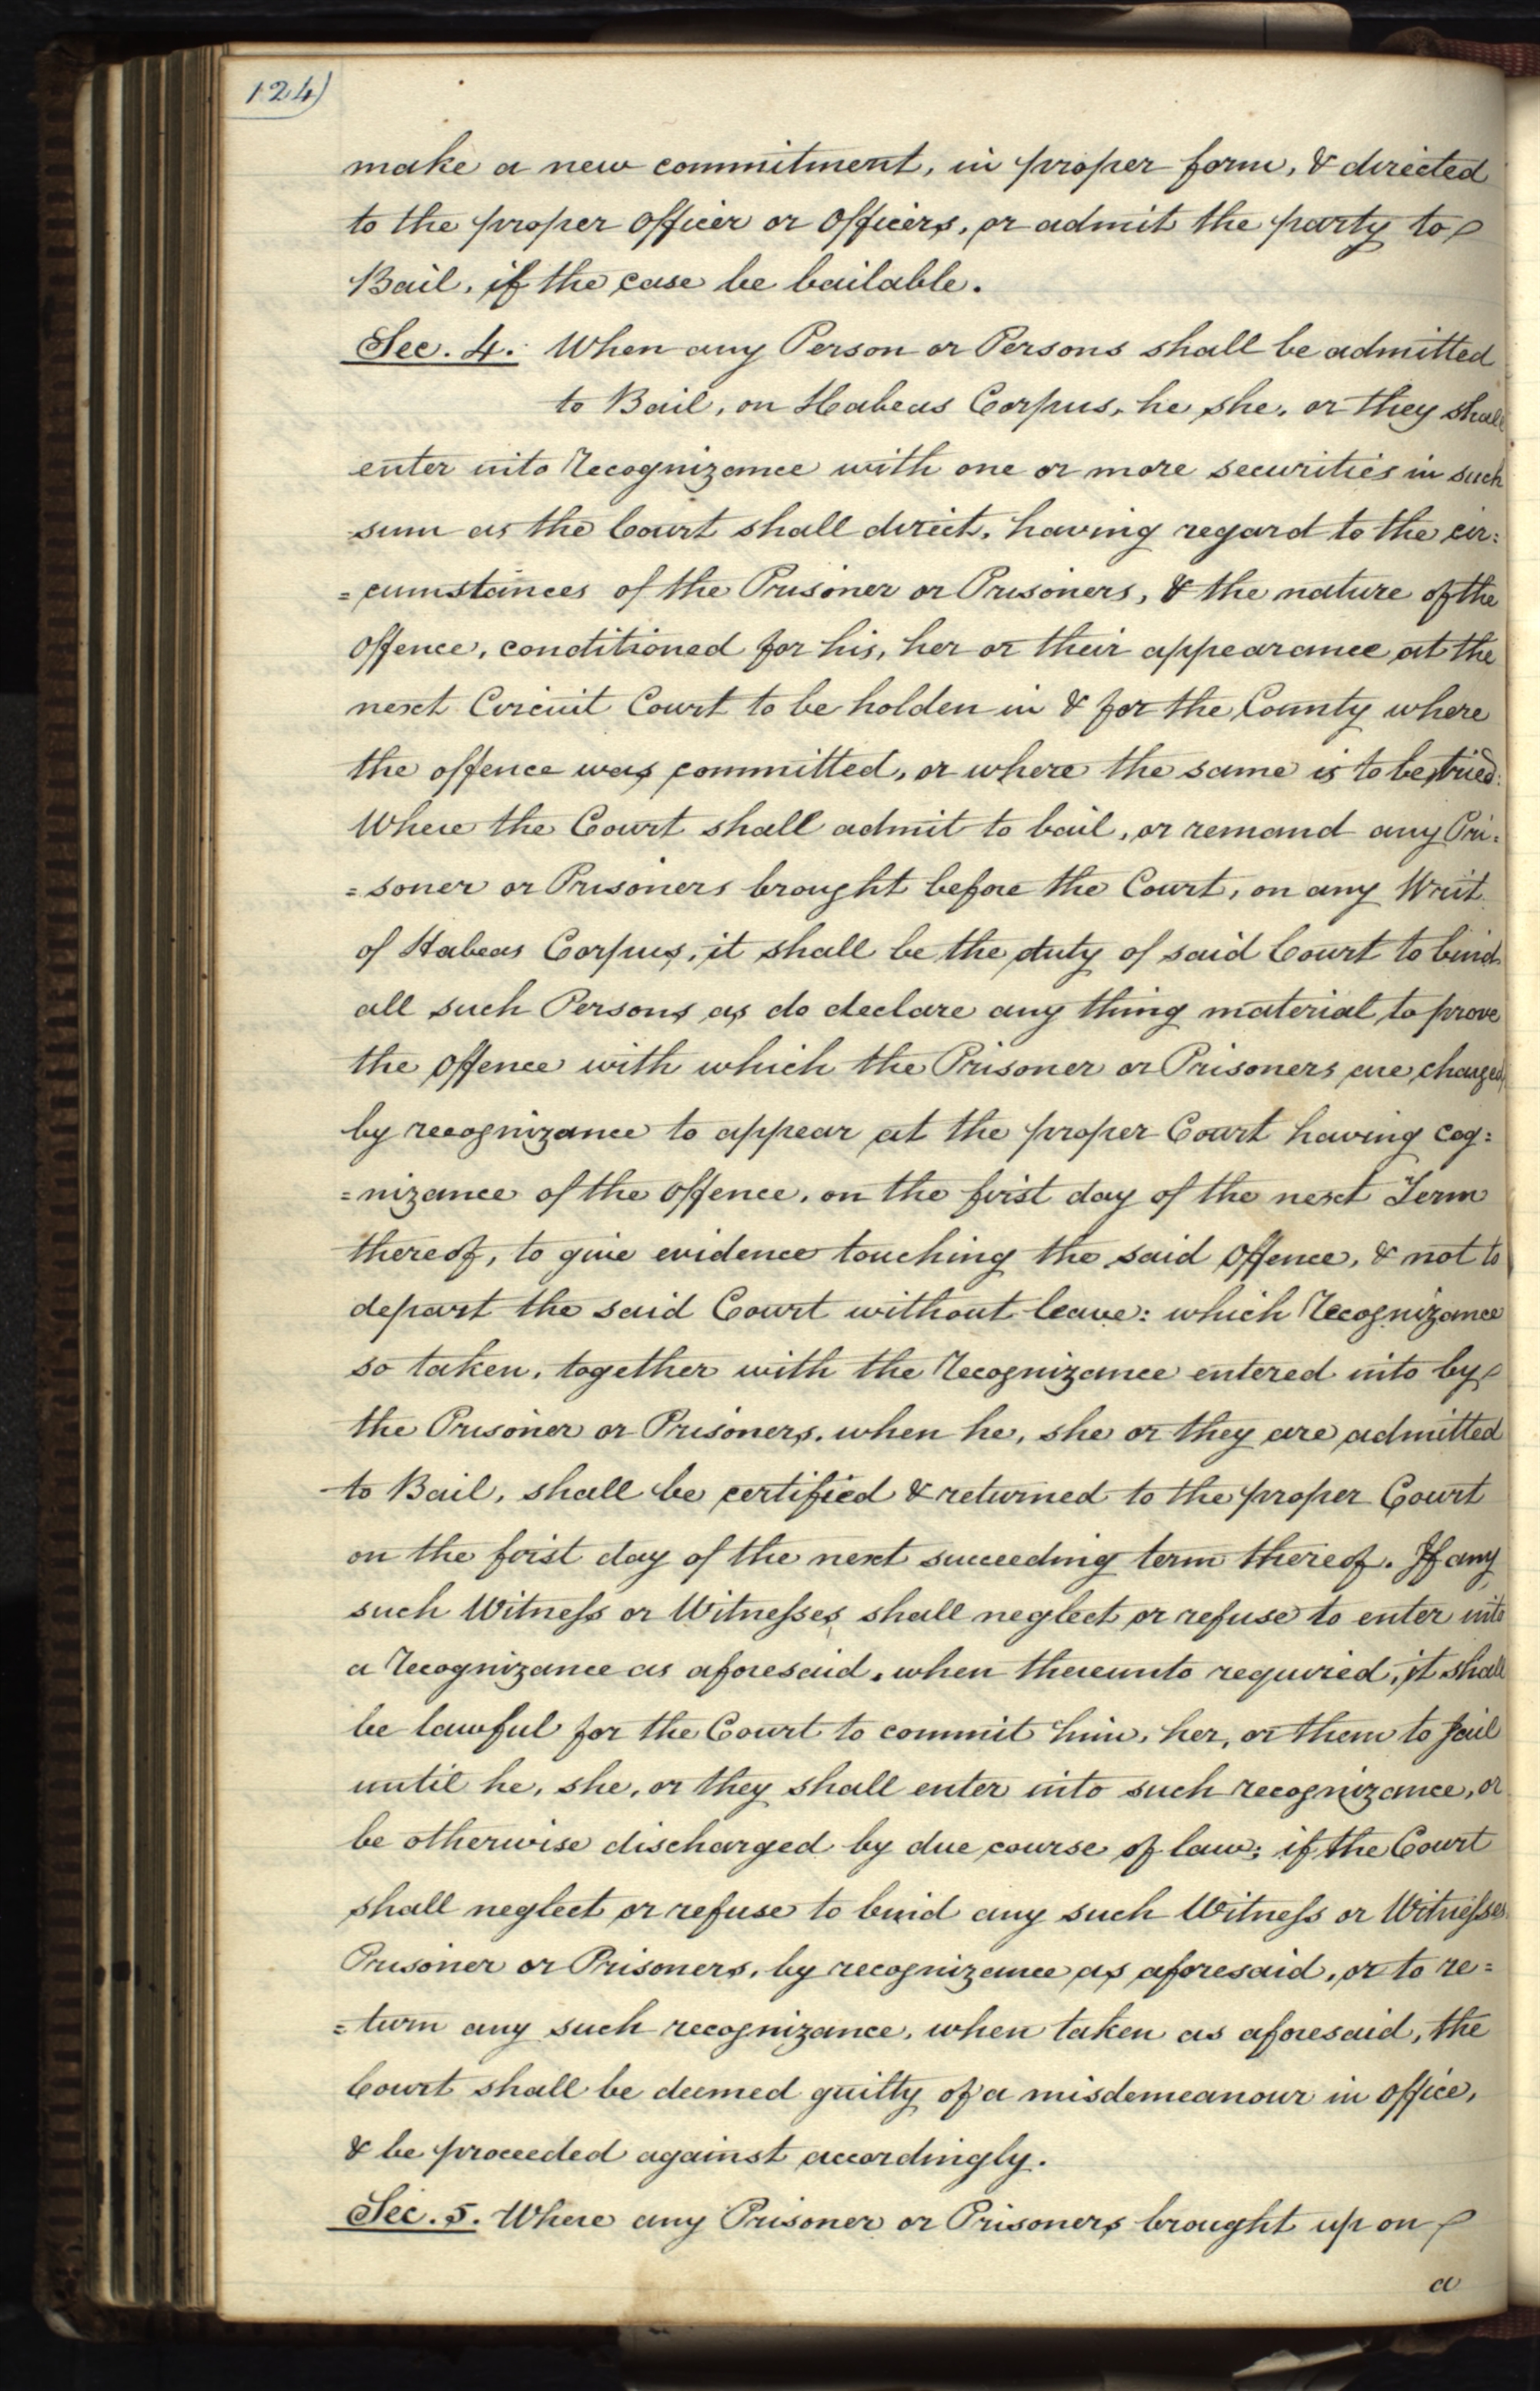 124)
make a new commitment, in proper form, & directed
to the proper officer or officers, or admit the party to
Bail, if the case be bailable.
Sec. 4. When any Person or Persons shall be admitted
to Bail, on Habeas Corpus, he she, or they shall
enter into Recognizance with one or more securities in such
sum as the Court shall direct, having regard to the cir:
=cumstances of the Prisoner or Prisoners, & the nature of the
offence, conditioned for his, her or their appearance at the
next Circuit Court to be holden in & for the County where
the offence was committed, or where the same is to be tried:
Where the Court shall admit to bail, or remand any Pri:
=soner or Prisoners brought before the Court, on any Writ
of Habeas Corpus, it shall be the duty of said Court to bind
all such Persons as do declare any thing material to prove
the offence with which the Prisoner or Prisoners are charged,
by recognizance to appear at the proper Court having cog:
=nizance of the offence, on the first day of the next Term
thereof, to give evidence touching the said offence, & not to
depart the said Court without leave: which Recognizance
so taken, together with the Recognizance entered into by
the Prisoner or Prisoners, when he, she or they are admitted
to Bail, shall be certified & returned to the proper Court
on the first day of the next succeeding term thereof. If any
such Witness or Witnesses shall neglect or refuse to enter into
a Recognizance as aforesaid, when thereunto required, it shall
be lawful for the Court to commit him, her, or them to Jail
until he, she, or they shall enter into such recognizance, or
be otherwise discharged by due course of law; if the Court
shall neglect or refuse to bind any such Witness or Witnesses
Prisoner or Prisoners, by recognizance as aforesaid, or to re=
=turn any such recognizance, when taken as aforesaid, the
Court shall be deemed guilty of a misdemeanour in office,
& be proceeded against accordingly.
Sec. 5. Where any Prisoner or Prisoners brought up on
a